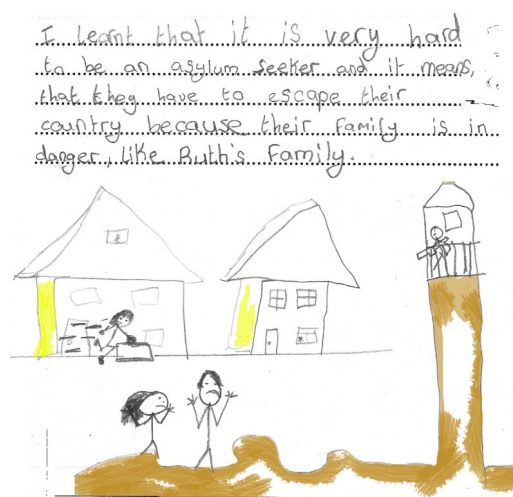 I learnt that it is very hard
to be an asylum seeker and it means,
that they have to escape their
country because their family is in
danger, like Ruth's Family.